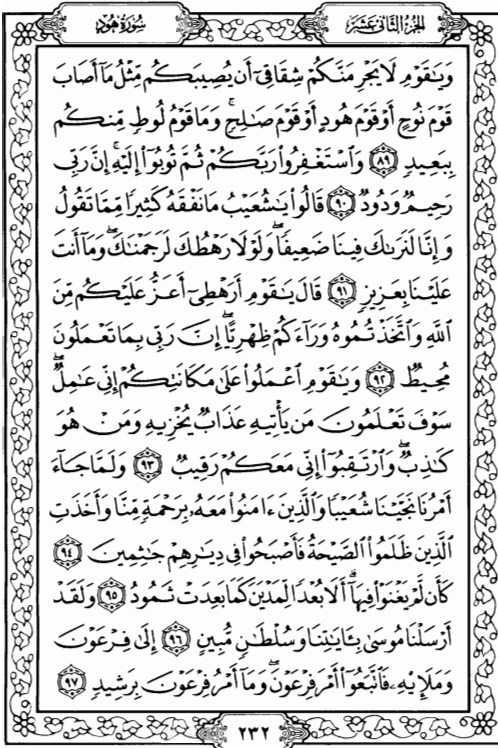 الجزء الثاني عشر
سورة هود
وَيَٰقَوْمِ لَا يَجْرِمَنَّكُمْ شِقَاقِىٓ أَن يُصِيبَكُم مِّثْلُ مَآ أَصَابَ
قَوْمَ نُوحٍ أَوْ قَوْمَ هُودٍ أَوْ قَوْمَ صَٰلِحٍ ۚ وَمَا قَوْمُ لُوطٍ مِّنكُم
بِبَعِيدٍ ۝٨٩ وَٱسْتَغْفِرُوا۟ رَبَّكُمْ ثُمَّ تُوبُوٓا۟ إِلَيْهِ ۚ إِنَّ رَبِّى
رَحِيمٌ وَدُودٌ ۝٩٠ قَالُوا۟ يَٰشُعَيْبُ مَا نَفْقَهُ كَثِيرًا مِّمَّا تَقُولُ
وَإِنَّا لَنَرَىٰكَ فِينَا ضَعِيفًا ۖ وَلَوْلَا رَهْطُكَ لَرَجَمْنَٰكَ ۖ وَمَآ أَنتَ
عَلَيْنَا بِعَزِيزٍ ۝٩١ قَالَ يَٰقَوْمِ أَرَهْطِىٓ أَعَزُّ عَلَيْكُم مِّنَ
ٱللَّهِ وَٱتَّخَذْتُمُوهُ وَرَآءَكُمْ ظِهْرِيًّا ۖ إِنَّ رَبِّى بِمَا تَعْمَلُونَ
مُحِيطٌ ۝٩٢ وَيَٰقَوْمِ ٱعْمَلُوا۟ عَلَىٰ مَكَانَتِكُمْ إِنِّى عَٰمِلٌ ۖ
سَوْفَ تَعْلَمُونَ مَن يَأْتِيهِ عَذَابٌ يُخْزِيهِ وَمَنْ هُوَ
كَٰذِبٌ ۖ وَٱرْتَقِبُوٓا۟ إِنِّى مَعَكُمْ رَقِيبٌ ۝٩٣ وَلَمَّا جَآءَ
أَمْرُنَا نَجَّيْنَا شُعَيْبًا وَٱلَّذِينَ ءَامَنُوا۟ مَعَهُۥ بِرَحْمَةٍ مِّنَّا وَأَخَذَتِ
ٱلَّذِينَ ظَلَمُوا۟ ٱلصَّيْحَةُ فَأَصْبَحُوا۟ فِى دِيَٰرِهِمْ جَٰثِمِينَ ۝٩٤
كَأَن لَّمْ يَغْنَوْا۟ فِيهَآ ۗ أَلَا بُعْدًا لِّمَدْيَنَ كَمَا بَعِدَتْ ثَمُودُ ۝٩٥ وَلَقَدْ
أَرْسَلْنَا مُوسَىٰ بِـَٔايَٰتِنَا وَسُلْطَٰنٍ مُّبِينٍ ۝٩٦ إِلَىٰ فِرْعَوْنَ
وَمَلَإِي۟هِۦ فَٱتَّبَعُوٓا۟ أَمْرَ فِرْعَوْنَ ۖ وَمَآ أَمْرُ فِرْعَوْنَ بِرَشِيدٍ ۝٩٧
٢٣٢